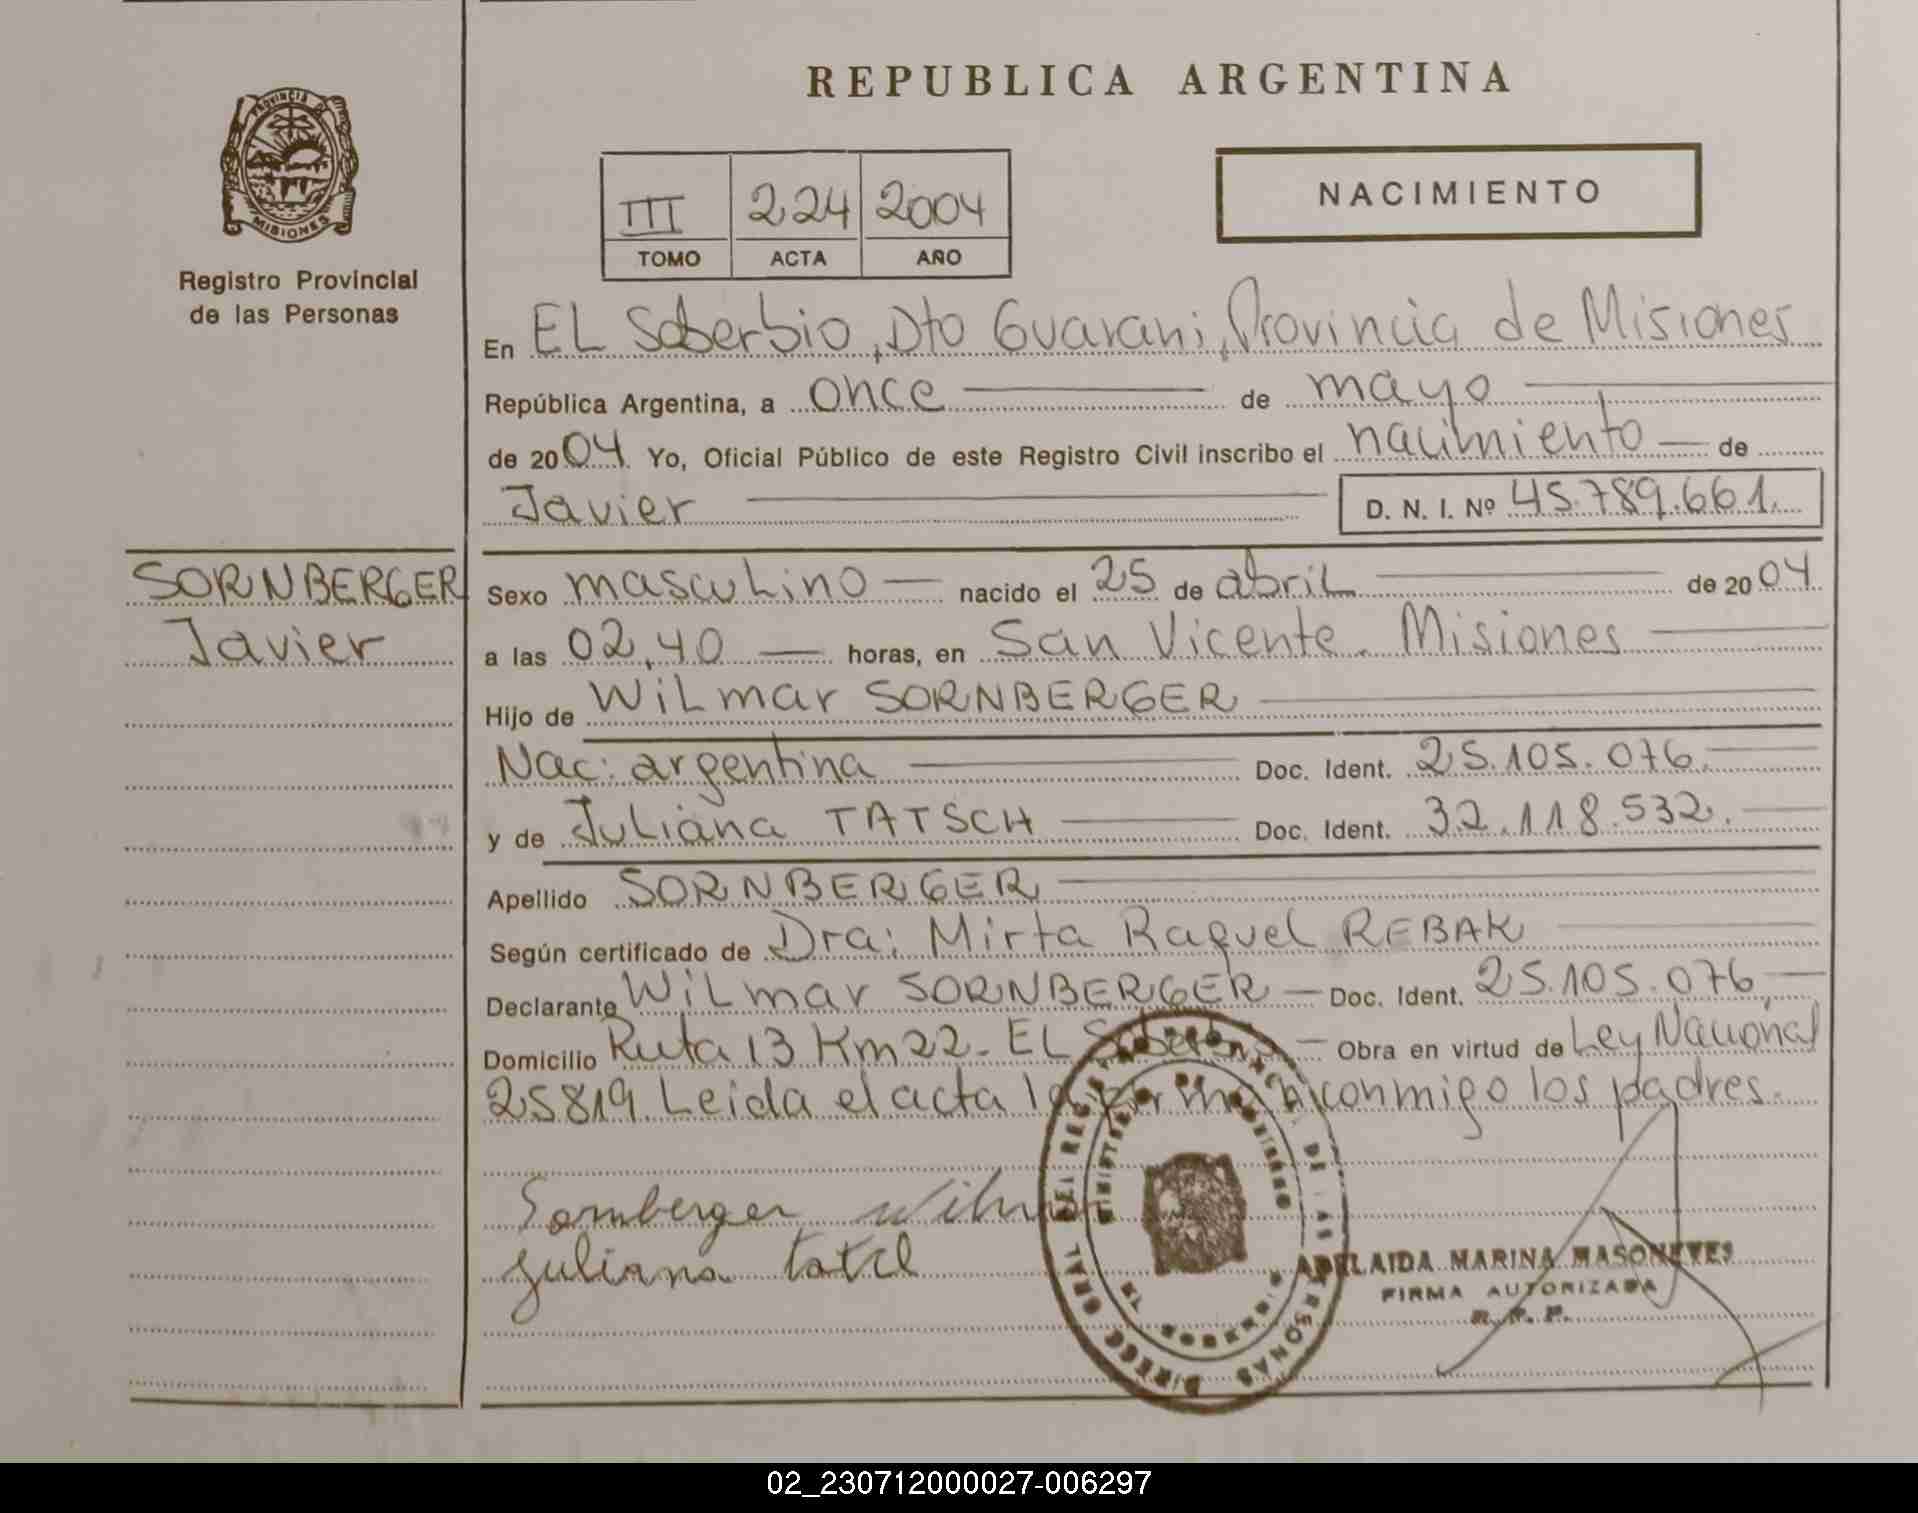 REPUBLICA ARGENTINA
PROVINCIA DE
MISIONES
Registro Provincial
de las Personas
NACIMIENTO
III 224 2004
TOMO ACTA AÑO
En EL Soberbio, Dto Guarani, Provincia de Misiones
República Argentina, a once de mayo
de 2004 Yo, Oficial Público de este Registro Civil inscribo el nacimiento de
Javier D. N. I. Nº 45.789.661.
SORNBERGER
Javier
Sexo masculino nacido el 25 de abril de 2004
a las 02,40 horas, en San Vicente. Misiones
Hijo de Wilmar SORNBERGER
Nac: argentina Doc. Ident. 25.105.076.
y de Juliana TATSCH Doc. Ident. 32.118.532.
Apellido SORNBERGER
Según certificado de Dra: Mirta Raquel REBAK
Declarante Wilmar SORNBERGER Doc. Ident. 25.105.076,
Domicilio Ruta 13 Km 22- EL Soberbio Obra en virtud de Ley Nacional
25819. Leida el acta la conmigo los padres.
Sornberger Wilmar
Juliana
ADELAIDA MARINA
FIRMA AUTORIZADA
R. P. P.
02_230712000027-006297